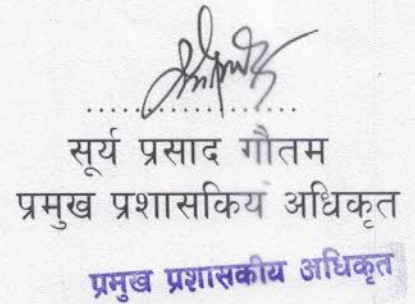 ....................
सूर्य प्रसाद गौतम
प्रमुख प्रशासकिय अधिकृत
प्रमुख प्रशासकीय अधिकृत